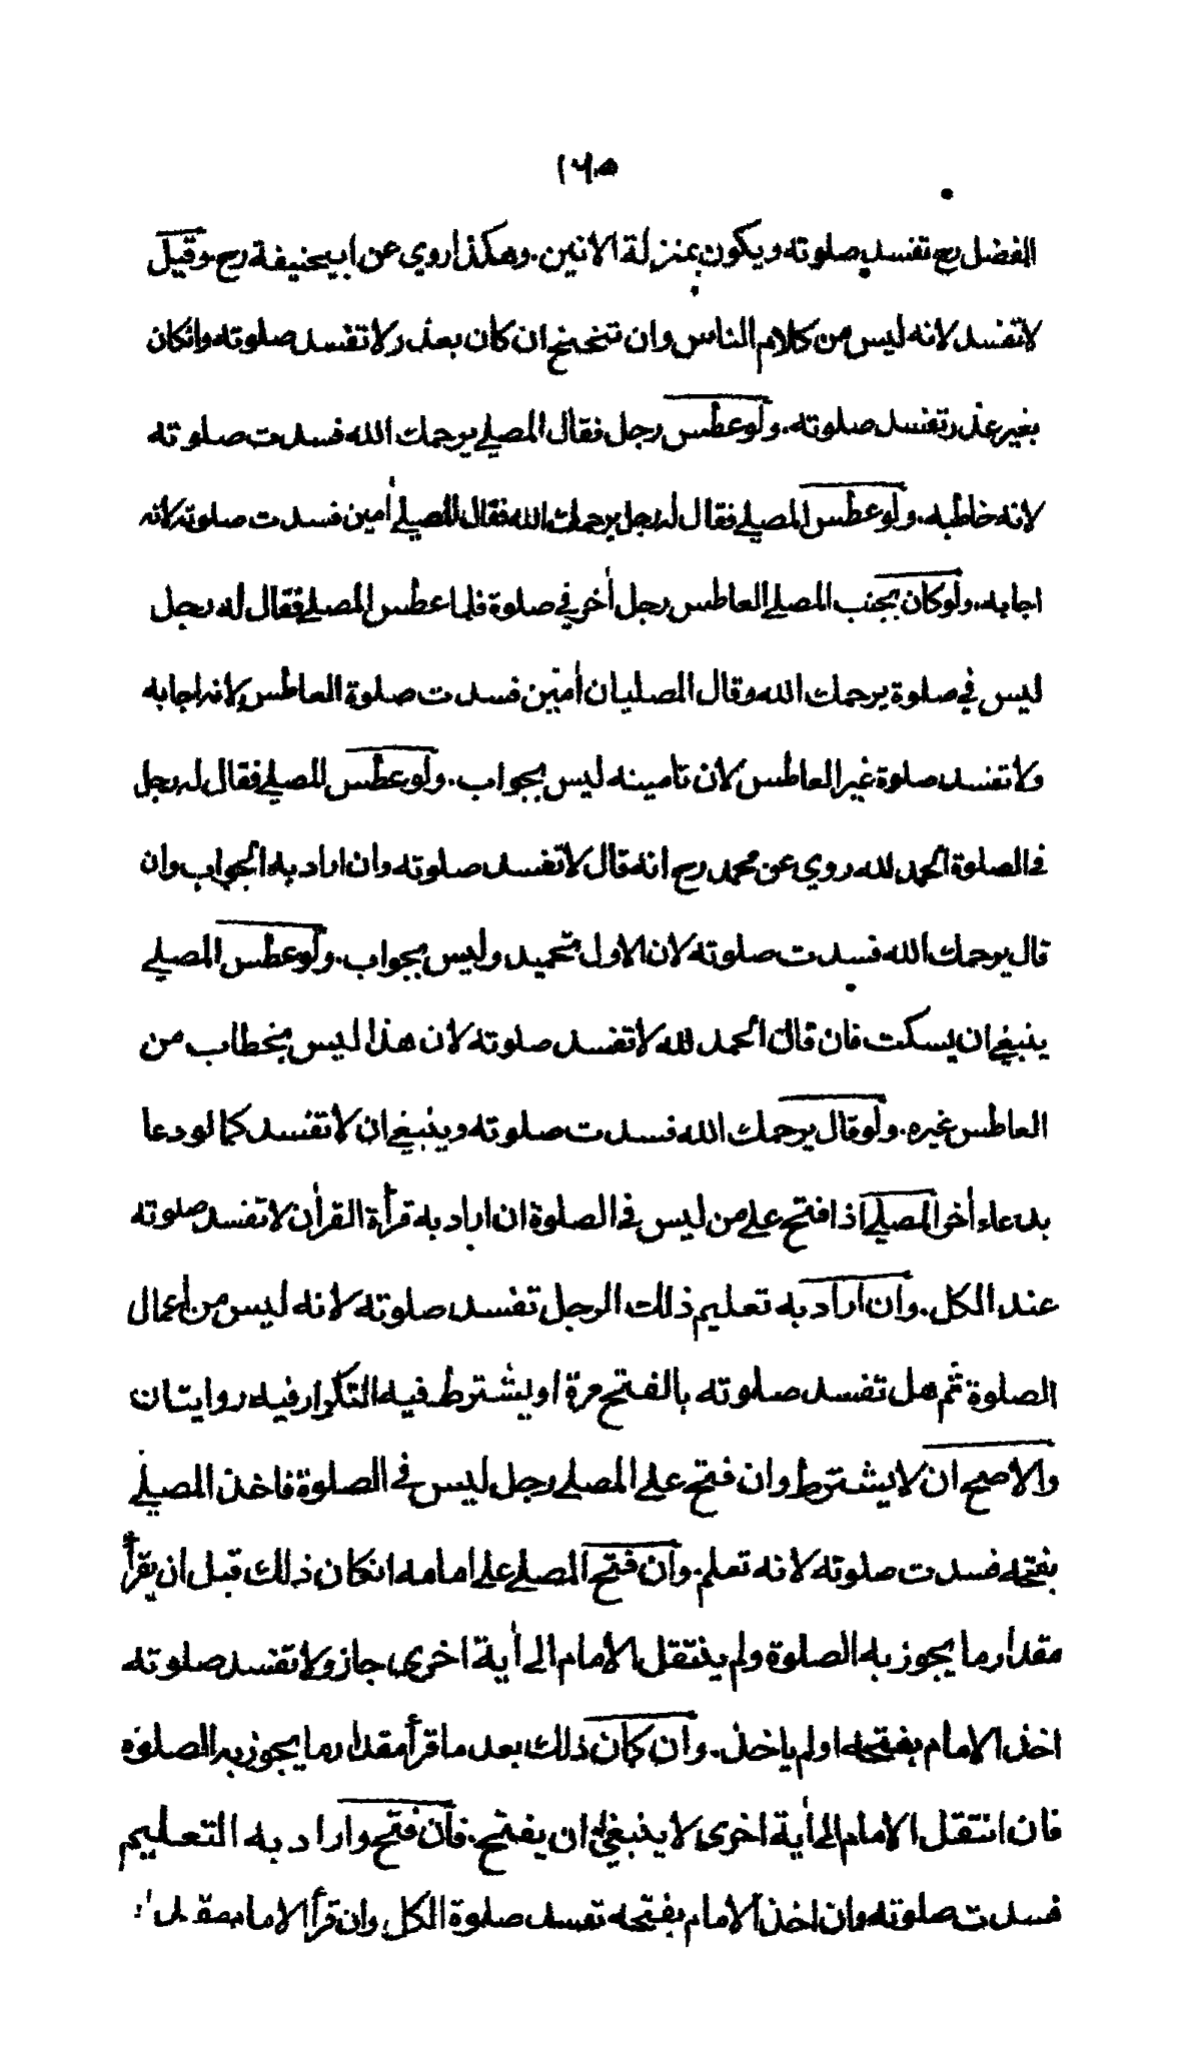 ١٦٥
الفضل رح تفسد صلوته ويكون بمنزلة الانين. وهكذا روي عن ابيحنيفة رح. وقيل
لا تفسد لانه ليس من كلام الناس وان تنحنح ان كان بعذر لا تفسد صلوته وانكان
بغير عذر تفسد صلوته. ولو عطس رجل فقال المصلي يرحمك الله فسدت صلوته
لانه خاطبه. ولو عطس المصلي فقال له رجل يرحمك الله فقال المصلي أمين فسدت صلوته لانه
اجابه. ولو كان بجنب المصلي العاطس رجل أخر في صلوة فلما عطس المصلي فقال له رجل
ليس في صلوة يرحمك الله وقال المصليان أمين فسدت صلوة العاطس لانه اجابه
ولا تفسد صلوة غير العاطس لان تامينه ليس بجواب. ولو عطس المصلي فقال له رجل
في الصلوة الحمد لله روي عن محمد رح انه قال لا تفسد صلوته وان اراد به الجواب وان
قال يرحمك الله فسدت صلوته لان الاول تحميد وليس بجواب. ولو عطس المصلي
ينبغي ان يسكت فان قال الحمد لله لا تفسد صلوته لان هذا ليس بخطاب من
العاطس غيره. ولو قال يرحمك الله فسدت صلوته وينبغي ان لا تفسد كما لو دعا
بدعاء أخر المصلي اذا افتح على من ليس في الصلوة ان اراد به قرأة القرأن لا تفسد صلوته
عند الكل. وان اراد به تعليم ذلك الرجل تفسد صلوته لانه ليس من اعمال
الصلوة ثم هل تفسد صلوته بالفتح مرة او يشترط فيه التكرار فيه روايتان
والاصح ان لا يشترط وان فتح على المصلي رجل ليس في الصلوة فاخذ المصلي
بفتحه فسدت صلوته لانه تعلم. وان فتح المصلي على امامه انكان ذلك قبل ان يقرأ
مقدار ما يجوز به الصلوة ولم ينتقل الامام الى أية اخرى جاز ولا تفسد صلوته
اخذ الامام بفتحه او لم ياخذ. وان كان ذلك بعد ما قرأ مقدار ما يجوز به الصلوة
فان انتقل الامام الى أية اخرى لا ينبغي له ان يفتح. فان فتح واراد به التعليم
فسدت صلوته وان اخذ الامام بفتحه تفسد صلوة الكل وان قرأ الامام مقدار